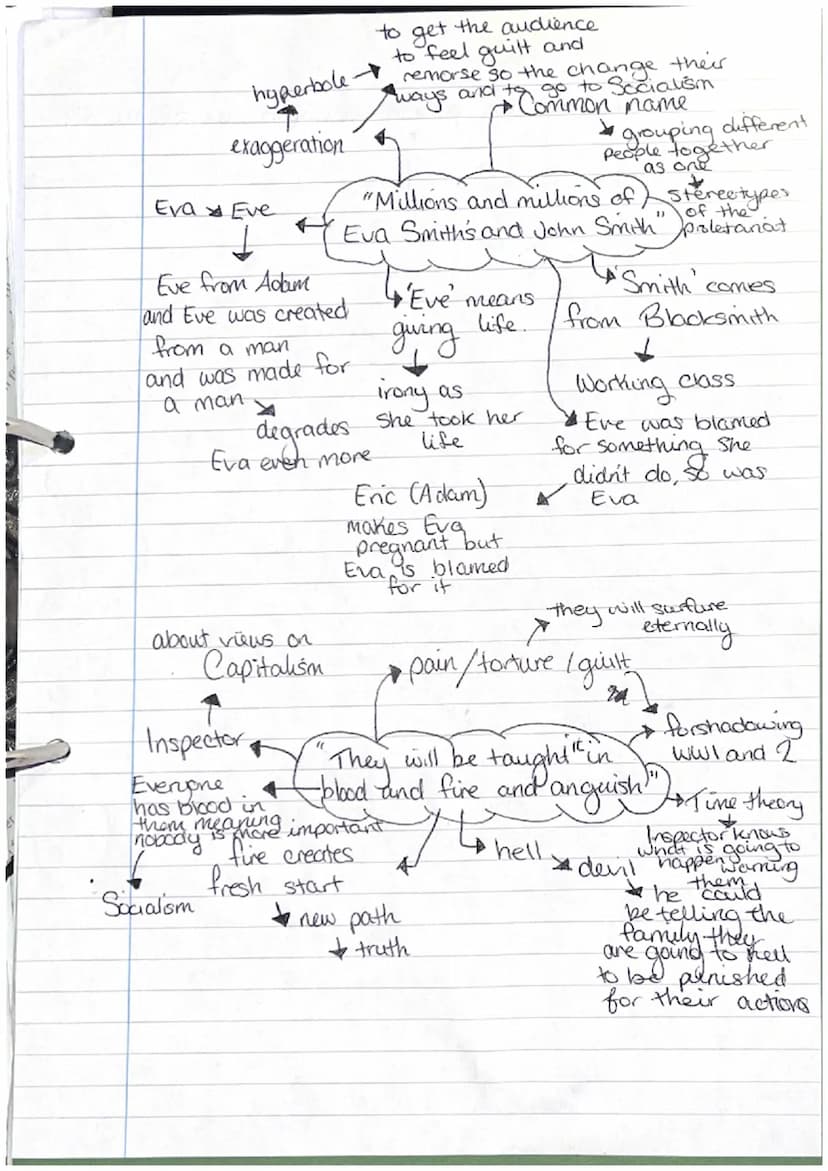 to get the audience
to feel guilt and
remorse so the change their
ways and to go to Socialism
hyperbole
exaggeration
Common name
grouping different
people together
as one
Stereotypes
of the
proletariat
"Millions and millions of
Eva Smith's and John Smith"
Eva Eve
Eve from Adam
and Eve was created
from a man
and was made for
a man
degrades
Eva even more
'Eve' means
giving life.
irony as
She took her
life
'Smith' comes
from Blacksmith
Working class
Eve was blamed
for something she
didn't do, so was
Eva
Eric (Adam)
makes Eva
pregnant but
Eva is blamed
for it
they will surfure
eternally
pain/torture/guilt
about views on
Capitalism
Inspector
"They will be taught it in
blood and fire and anguish"
forshadowing
WW1 and 2
Time theory
Inspector knows
what is going to
happen, warning
them
Everyone
has blood in
them meaning
nobody is more important
Socialism
fire creates
fresh start
new path
truth
hell
devil
he could
be telling the
family they
are going to hell
to be punished
for their actions